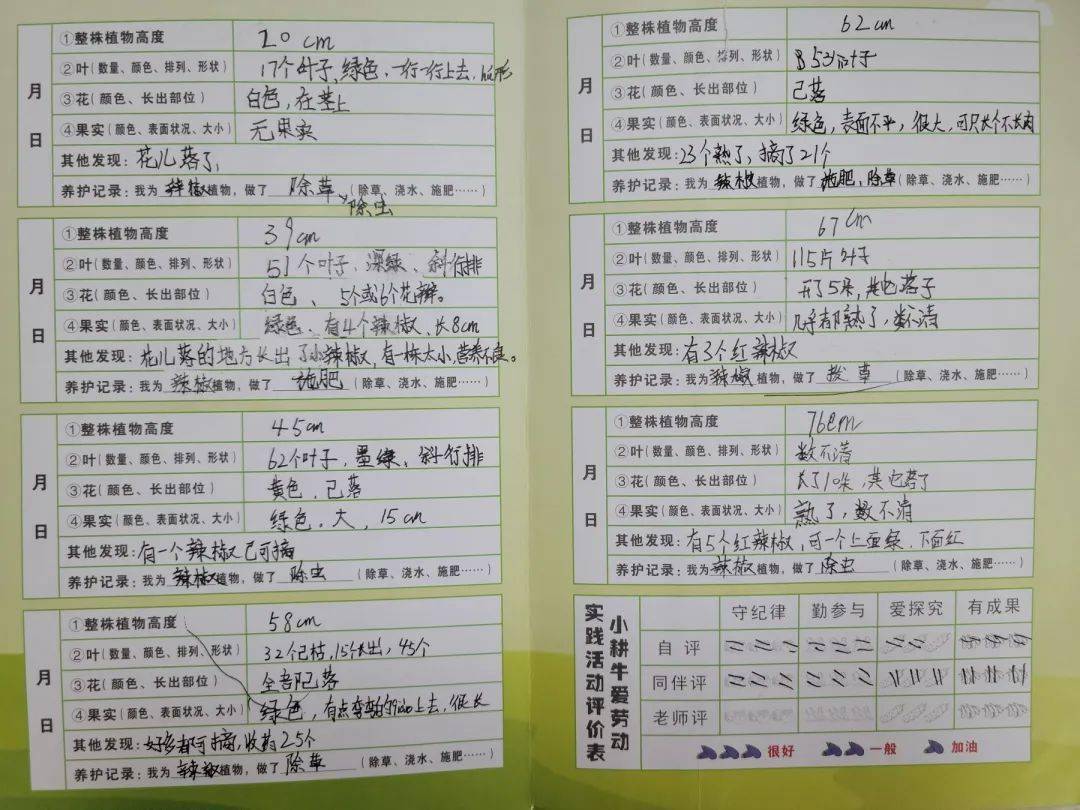 月 日
①整株植物高度 20 cm
②叶(数量、颜色、排列、形状) 17个叶子,绿色,一行一行上去,
③花(颜色、长出部位) 白色,在茎上
④果实(颜色、表面状况、大小) 无果实
其他发现:花儿落了,
养护记录:我为辣椒植物,做了除草、除虫(除草、浇水、施肥……)
月 日
①整株植物高度 39cm
②叶(数量、颜色、排列、形状) 51个叶子、深绿、斜行排
③花(颜色、长出部位) 白色、5个或6个花瓣。
④果实(颜色、表面状况、大小) 绿色、有4个辣椒、长8cm
其他发现:花儿落的地方长出了小辣椒,有一株太小,营养不良。
养护记录:我为辣椒植物,做了施肥(除草、浇水、施肥……)
月 日
①整株植物高度 45cm
②叶(数量、颜色、排列、形状) 62个叶子,墨绿、斜行排
③花(颜色、长出部位) 黄色,已落
④果实(颜色、表面状况、大小) 绿色,大,15cm
其他发现:有一个辣椒已可摘
养护记录:我为辣椒植物,做了除虫(除草、浇水、施肥……)
月 日
①整株植物高度 58cm
②叶(数量、颜色、排列、形状) 32个已枯,15个长出,45个
③花(颜色、长出部位) 全部已落
④果实(颜色、表面状况、大小) 绿色,有点弯 上去,很长
其他发现:好多都可摘,收获25个
养护记录:我为辣椒植物,做了除草(除草、浇水、施肥……)
月 日
①整株植物高度 62cm
②叶(数量、颜色、排列、形状) 853个叶子
③花(颜色、长出部位) 已落
④果实(颜色、表面状况、大小) 绿色,表面不平,很大,可只长个不长肉
其他发现:23个熟了,摘了21个
养护记录:我为辣椒植物,做了施肥,除草(除草、浇水、施肥……)
月 日
①整株植物高度 67cm
②叶(数量、颜色、排列、形状) 115片叶子
③花(颜色、长出部位) 开了5朵,其它落了
④果实(颜色、表面状况、大小) 几乎都熟了,数不清
其他发现:有3个红辣椒
养护记录:我为辣椒植物,做了拔草(除草、浇水、施肥……)
月 日
①整株植物高度 76cm
②叶(数量、颜色、排列、形状) 数不清
③花(颜色、长出部位) 长了10朵,其它落了
④果实(颜色、表面状况、大小) 熟了,数不清
其他发现:有5个红辣椒,可一个上面绿、下面红
养护记录:我为辣椒植物,做了除虫(除草、浇水、施肥……)
小耕牛爱劳动
实践活动评价表
守纪律 勤参与 爱探究 有成果
自评
同伴评
老师评
很好 一般 加油